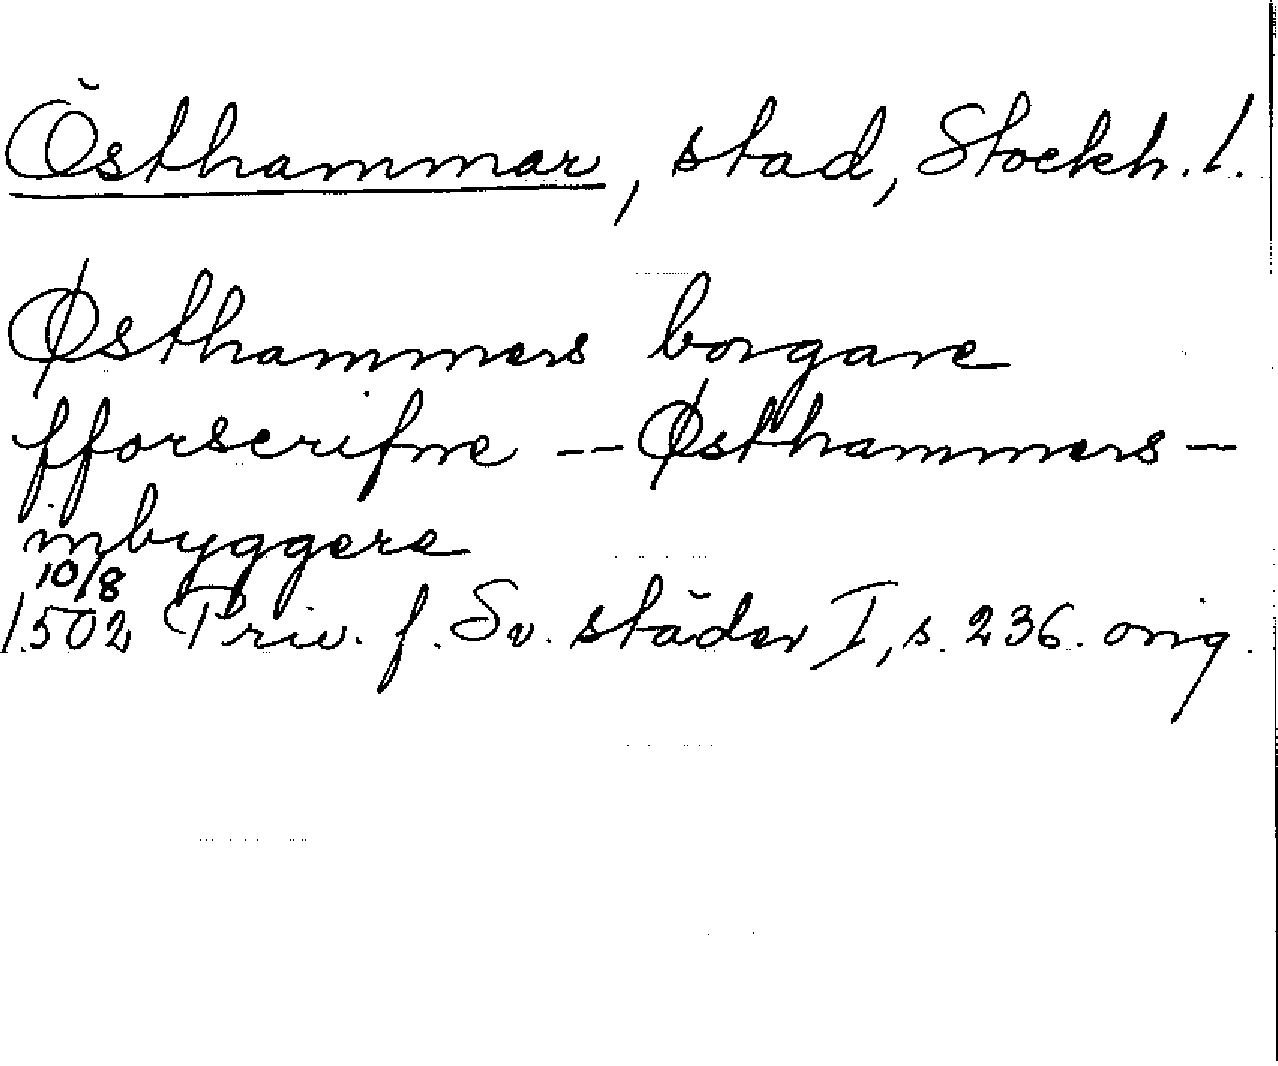 Östhammar, stad, Stockh. l.
Østhammers borgare
fforscrifne -- Østhammers -
inbyggere
10/8
1502 Priv. f. Sv. städer I, s. 236. orig.